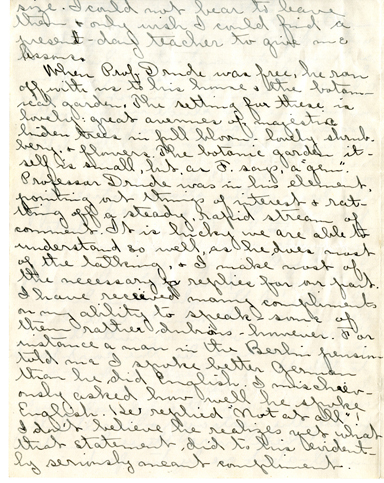 size. I could not bear to leave
them & only wish I could find a
present-day teacher to give me
lessons.
When Prof. Drude was free, he ran
off with us to his home & the botan-
ical garden. The setting for these is
lovely: great avenues of majestic
linden trees in full bloom, lovely shrub-
bery, & flowers. The botanic garden it-
self is small, but, as F. says, a "gem".
Professor Drude was in his element,
pointing out things of interest & rat-
tling off a steady, rapid stream of
comment. It is lucky we are able to
understand so well, as he does most
of the talking, & I make most of
the necessary replies for our part.
I have received many compliments
on my ability to speak some of
them rather dubious however. For
instance a man in the Berlin pension
told me I spoke better German
than he did English. I mischiev-
ously asked how well he spoke
English. He replied "Not at all"!
I don't believe he realizes yet what
that statement did to his evident-
ly seriously meant compliment.